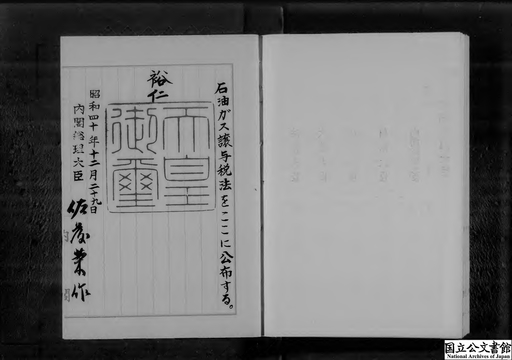 石油ガス譲与税法をここに公布する。
裕仁
天皇
御璽
昭和四十年十二月二十九日
内閣総理大臣
佐藤榮作
国立公文書館
National Archives of Japan